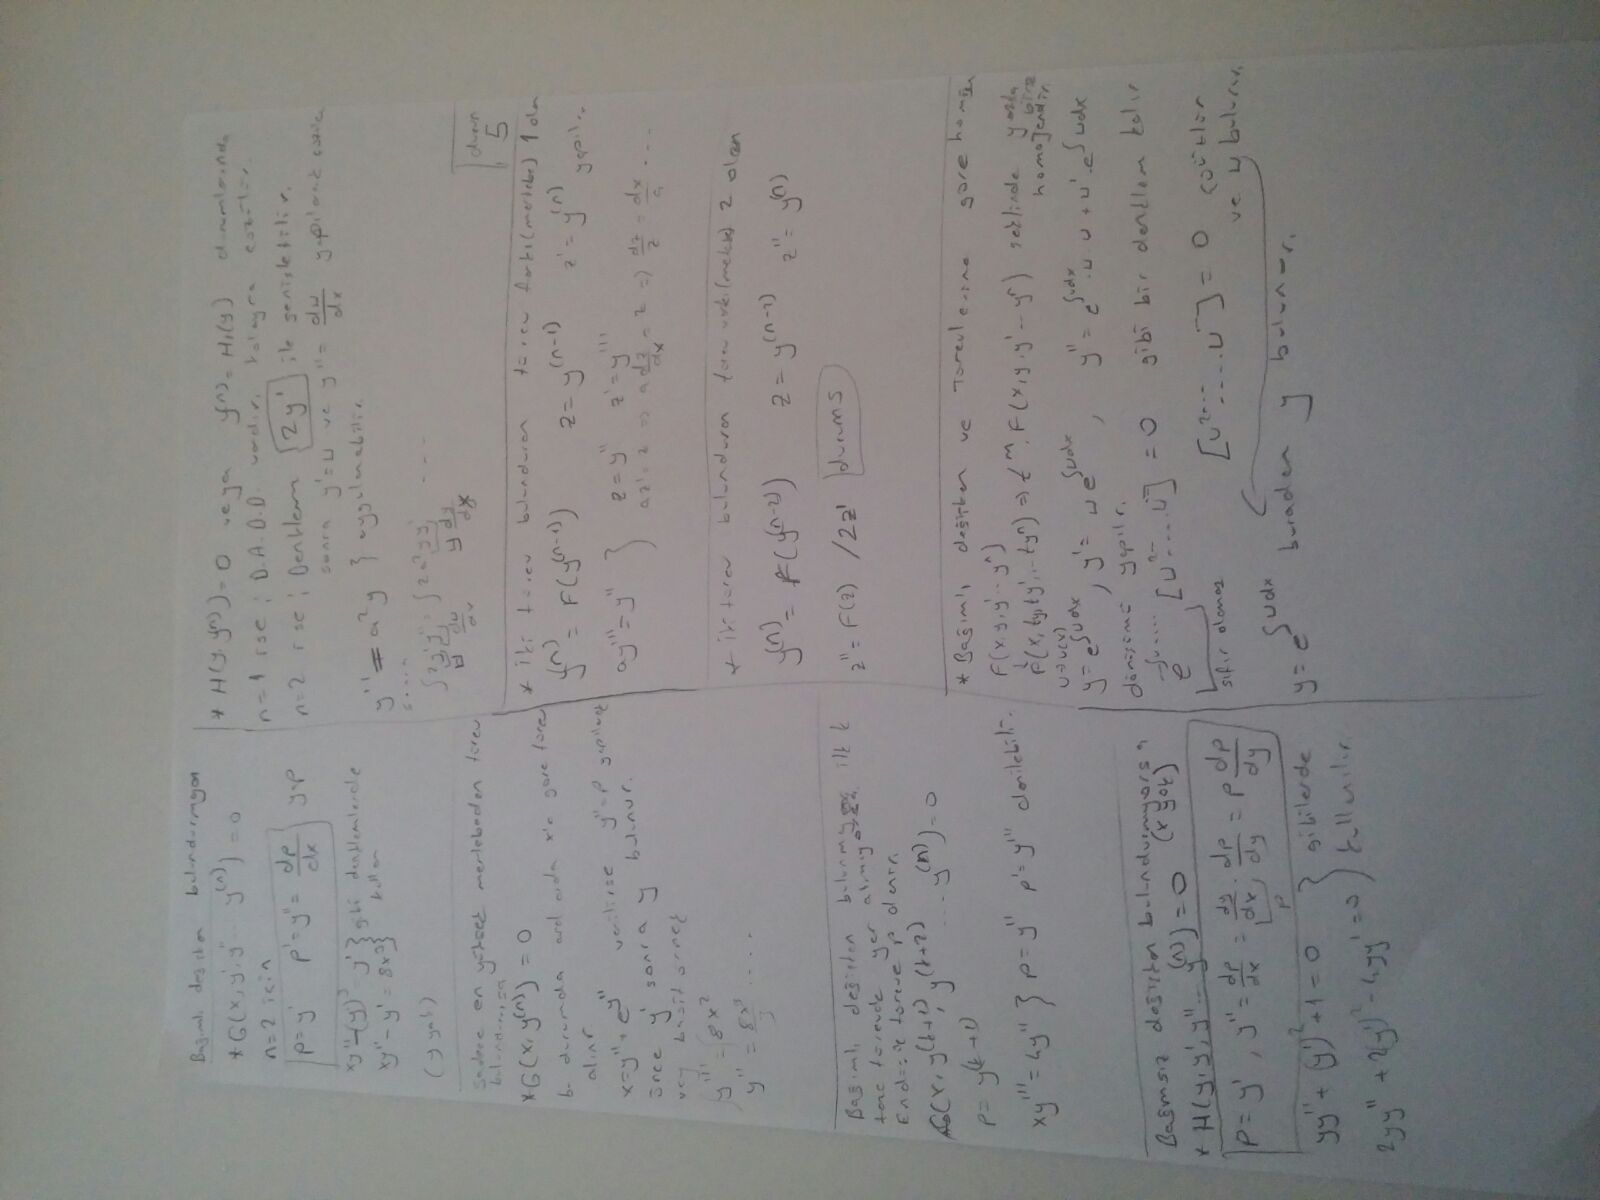 Bağımlı değişken bulundurmayan
*G(x, y', y'' ... y^(n)) = 0
n=2 için
p=y'   p'=y''= dp/dx   y→p
xy''-(y')³ = y' } gibi denklemlerde
xy''-y' = 8x³ } kullan
(y yok)
Sadece en yüksek mertebeden türev
bulunduruyorsa
*G(x, y^(n)) = 0
bu durumda ard arda x'e göre türev
alınır
x=y''+e^y'' verilirse y''=p yapılarak
önce y' sonra y bulunur.
vey basit örnek
∫y''' = ∫8x²
y'' = 8x³/3 ....
Bağımlı değişken bulunmuyor ilk k
tane türevde yer almıyorsa
En düşük türeve p denir.
G(x, y^(k+1), y^(k+2) ... y^(n)) = 0
p = y^(k+1)
xy''' = 4y'' } p=y''   p'=y''' denilebilir.
Bağımsız değişken bulundurmuyorsa
* H(y, y', y'' ... y^(n)) = 0   (x yok)
p=y' , y''= dp/dx = dy/dx . dp/dy = p dp/dy
p
yy''+(y')²+1=0 } gibilerde
2yy''+2(y')²-4yy'=0 } kullanılır.
* H(y, y^(n)) = 0 veya y^(n) = H₁(y) durumlarında
n=1 ise ; D.A.D.D. vardır, kolayca çözülür.
n=2 ise ; Denklem 2y' ile genişletilir.
sonra y'=u ve y''= du/dx yapılarak çözülür
y'' = a²y } uygulanabilir.
sonra
∫2y'y'' = ∫2a²yy' ...
u du/dx   y dy/dx
durum
5
* iki türev bulunduran türev farkı(mertebe) 1 olan
y^(n) = F(y^(n-1))   z = y^(n-1)   z' = y^(n) yapılır.
ay'''=y'' } z=y''   z'=y'''
az'=z ⇒ a dz/dx = z ⇒ dz/z = dx/a ...
* iki türev bulunduran türev farkı(mertebe) 2 olan
y^(n) = F(y^(n-2))   z = y^(n-2)   z'' = y^(n)
z'' = F(z) /2z'   durum5
* Bağımlı değişken ve Türevlerine göre homojen
F(x, y, y' ... yⁿ)
F(x, ty, ty', ... tyⁿ) ⇒ t^m . F(x, y, y' ... yⁿ) şeklinde yazılabilirse
homojendir.
u→u(x)
y = e^∫udx , y' = u e^∫udx , y'' = e^∫udx . u . u + u' . e^∫udx
dönüşümü yapılır.
e^∫u.... [u²....u'] = 0 gibi bir denklem kalır
sıfır olamaz
[u²....u'] = 0 çözülür
ve u bulunur.
y = e^∫udx buradan y bulunur.